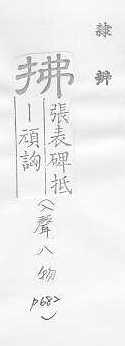 隸辨
拂
張表碑抵
丨頑訩
(入聲八物 p682)